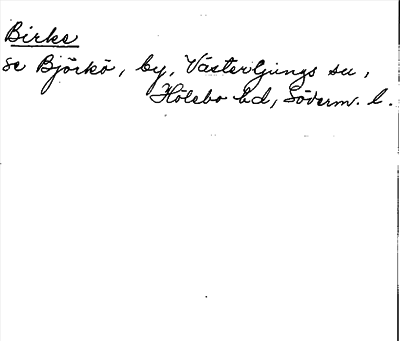 Birke
se Björkö, by, Västerljungs sn,
Hölebo hd, Söderm. l.